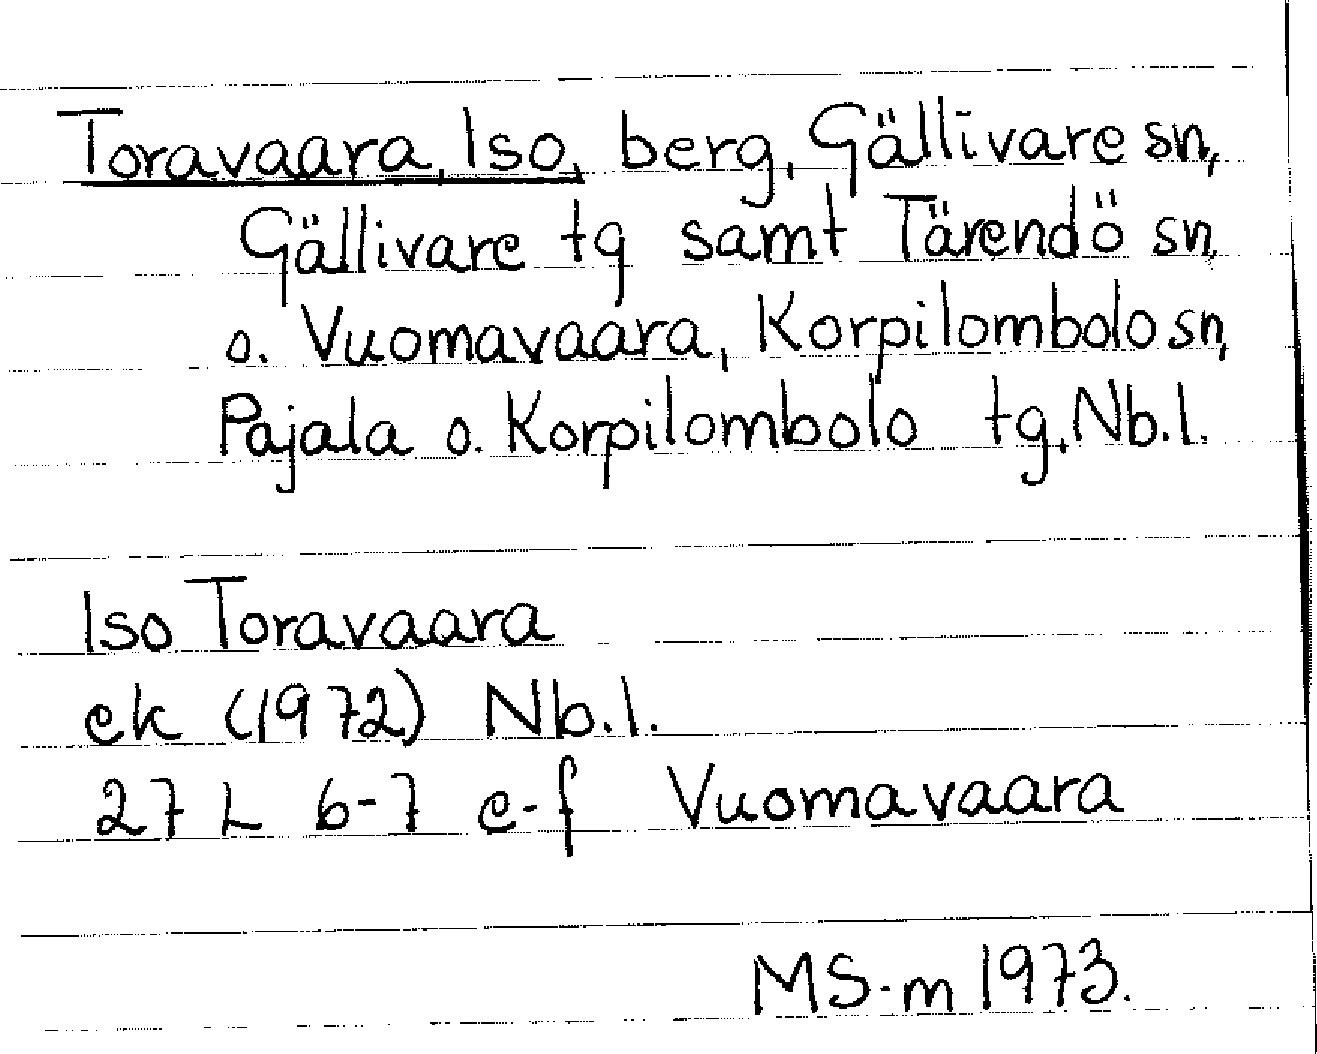 Toravaara, Iso, berg, Gällivare sn,
Gällivare tg samt Tärendö sn,
o. Vuomavaara, Korpilombolo sn,
Pajala o. Korpilombolo tg, Nb.l.
Iso Toravaara
ek (1972) Nb.l.
27 L 6-7 e-f Vuomavaara
MS-m 1973.